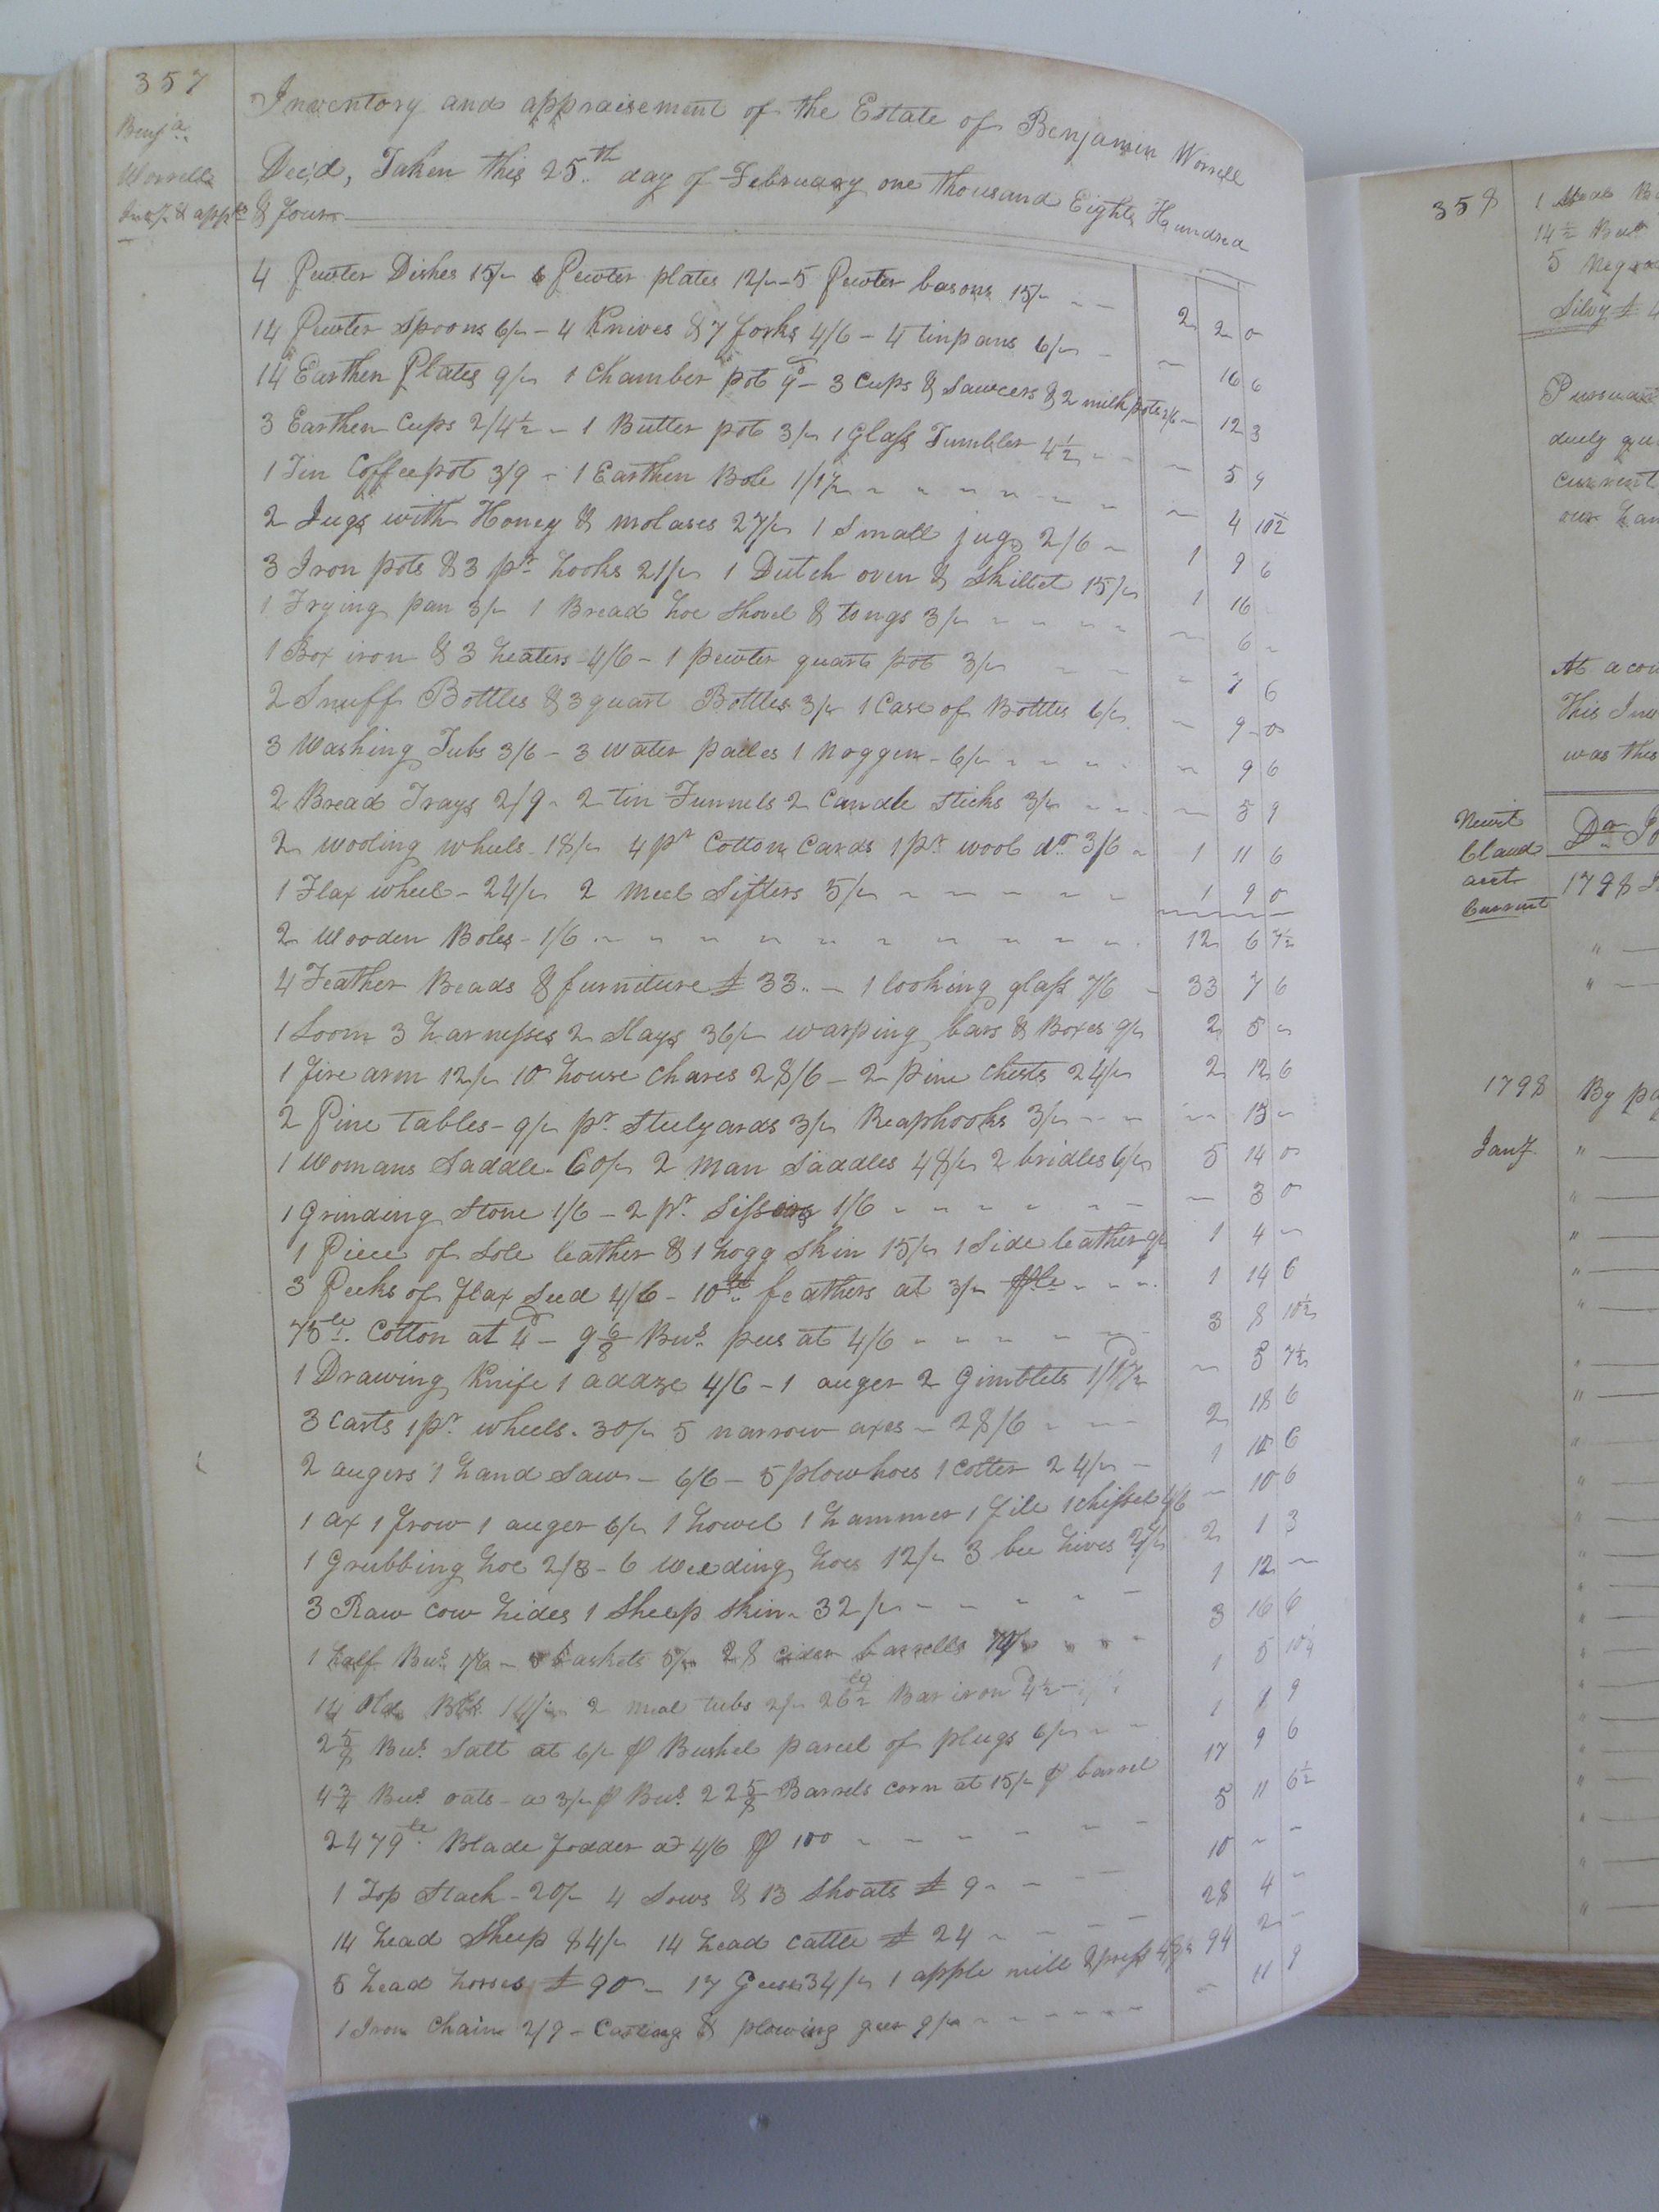 357
Benja
Worrells
Invy & appt
Inventory and appraisement of the Estate of Benjamin Worrell
Decd, Taken this 25th day of February one thousand Eight Hundred
& four
4 Pewter Dishes 15/- 6 Pewter plates 12/- 5 Pewter basons 15/- 2 2 0
14 Pewter Spoons 6/- 4 Knives & 7 forks 4/6 - 4 tinpans 6/- 16 6
14 Earthen Plates 9/- 1 Chamber pot 9d - 3 Cups & Sawcers & 2 milk pots 2/6 - 12 3
3 Earthen Cups 2/4½ - 1 Butter pot 3/- 1 Glass Tumbler 4½ - 5 9
1 Tin Coffeepot 3/9 - 1 Earthen Bole 1/1½ - 4 10½
2 Jugs with Honey & molases 27/- 1 Small jug 2/6 - 1 9 6
3 Iron pots & 3 pr hooks 21/- 1 Dutch oven & Skillet 15/- 1 16
1 Frying pan 3/- 1 Bread hoe Shovel & tongs 3/- 6 -
1 Box iron & 3 heaters 4/6 - 1 pewter quart pot 3/- 7 6
2 Snuff Bottles & 3 quart Bottles 3/- 1 Case of Bottles 6/- 9 - 0
3 Washing Tubs 3/6 - 3 water pailes 1 Noggen - 6/- 9 6
2 Bread Trays 2/9 - 2 tin Funnels 2 Candle sticks 3/- 5 9
2 wooling wheels 18/- 4 pr Cotton Cards 1 pr wool do 3/6 - 1 11 6
1 Flax wheel - 24/- 2 Meel Sifters 5/- 1 9 0
2 Wooden Boles - 1/6 - 12 6 7½
4 Feather Beads & furniture £ 33.. - 1 looking glass 7/6 - 33 7 6
1 Loom 3 harnesses 2 Slays 36/- warping bars & Boxes 9/- 2 5 -
1 fire arm 12/- 10 house chares 28/6 - 2 pine chests 24/- 2 12 6
2 Pine tables - 9/- pr Steelyards 3/- Reaphooks 3/- 15 -
1 Womans Saddle - 60/- 2 Man Saddles 48/- 2 bridles 6/- 5 14 0
1 Grinding Stone 1/6 - 2 pr. 1/6 - 3 0
1 Piece of Sole leather & 1 hogg Skin 15/- 1 Side leather 9/- 1 4 -
3 Pecks of flax Seed 4/6 - 10 feathers at 3/- 1 14 6
75 Cotton at - 9 6/8 Bus. peas at 4/6 - 3 8 10½
1 Drawing Knife 1 addze 4/6 - 1 auger 2 Gimblets 1/1½ - 5 7½
3 Carts 1 pr. wheels. 30/- 5 narrow axes - 28/6 - 2 18 6
2 augers 1 hand Saw - 6/6 - 5 plowhoes 1 Colter 24/- 1 10 6
1 ax 1 frow 1 auger 6/- 1 howel 1 hammer 1 file 1 chissel 4/6 - 10 6
1 Grubbing hoe 2/3 - 6 Weeding hoes 12/- 3 bee hives 27/- 2 1 3
3 Raw cow hides 1 Sheep Skin - 32/- 1 12 -
1 half Bus. 1/6 - 5 Caskets 5/- 28 cider barrells 70/- 3 16 6
14 Old 14/- 2 meal tubs 2/- 26½ Bar iron 4½ - 1 5
2 5/8 Bus. Salt at 6/- Bushel parcel of plugs 6/- 1 1 9
4¾ Bus. oats - a 3/- Bus. 22 5/8 Barrels corn at 15/- barrel 17 9 6
2479 Blade fodder a 4/6 100 - 5 11 6½
1 Top Stack - 20/- 4 Sows & 13 Shoats £ 9 - 10 - -
14 head Sheep 84/- 14 head cattle £ 24 - 28 4 -
5 head horses £ 90 - 17 Geese 34/- 1 apple mill & press 48/- 94 2 -
1 Iron Chain 2/9 - Carting & plowing geer 9/- - 11 9
358
14½
5 Negroes
Silvy £ 4
Pursuant
duely
Current
our han
At a cou
This Inv
was this
Newit
Claud
acct
Current
Dr. Jo
1798
1798
By pa
Jany.